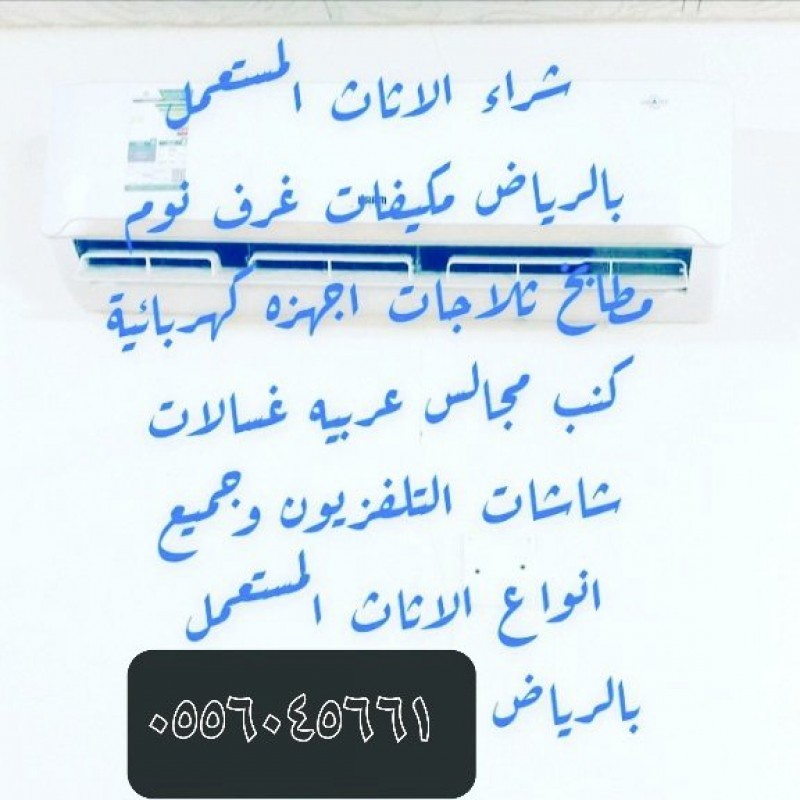 شراء الاثاث المستعمل
بالرياض مكيفات غرف نوم
مطابخ ثلاجات اجهزه كهربائية
كنب مجالس عربيه غسالات
شاشات التلفزيون وجميع
انواع الاثاث المستعمل
بالرياض ٠٥٥٦٠٤٥٦٦١